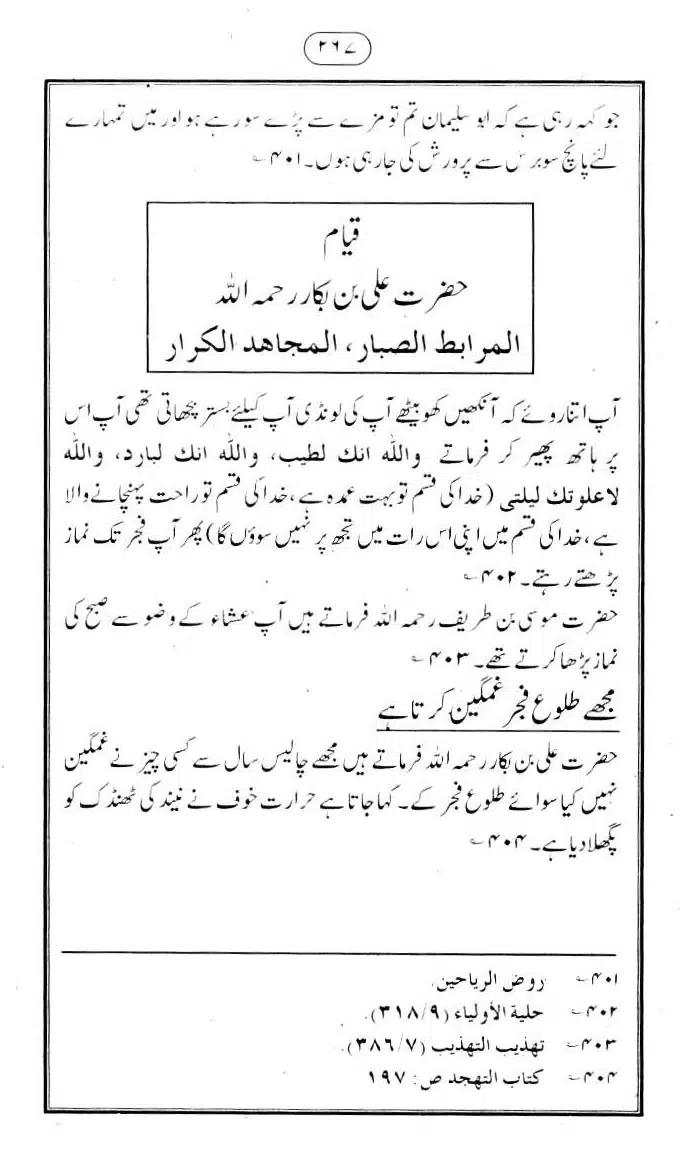 ۲۶۷
جو کہہ رہی ہے کہ ابو سلیمان تم تو مزے سے پڑے سو رہے ہو اور میں تمہارے
لئے پانچ سو برس سے پرورش کی جا رہی ہوں۔ ۴۰۱؎
قیام
حضرت علی بن بکار رحمہ اللہ
المرابط الصبار، المجاهد الكرار
آپ اتنا روئے کہ آنکھیں کھو بیٹھے آپ کی لونڈی آپ کیلئے بستر بچھاتی تھی آپ اس
پر ہاتھ پھیر کر فرماتے والله انك لطيب، والله انك لبارد، والله
لاعلوتك ليلتى (خدا کی قسم تو بہت عمدہ ہے، خدا کی قسم تو راحت پہنچانے والا
ہے، خدا کی قسم میں اپنی اس رات میں تجھ پر نہیں سوؤں گا) پھر آپ فجر تک نماز
پڑھتے رہتے۔ ۴۰۲؎
حضرت موسی بن طریف رحمہ اللہ فرماتے ہیں آپ عشاء کے وضو سے صبح کی
نماز پڑھا کرتے تھے۔ ۴۰۳؎
مجھے طلوع فجر غمگین کرتا ہے
حضرت علی بن بکار رحمہ اللہ فرماتے ہیں مجھے چالیس سال سے کسی چیز نے غمگین
نہیں کیا سوائے طلوع فجر کے۔ کہا جاتا ہے حرارت خوف نے نیند کی ٹھنڈک کو
پگھلا دیا ہے۔ ۴۰۴؎
۴۰۱؎ روض الرياحين.
۴۰۲؎ حلية الأولياء (۳۱۸/۹).
۴۰۳؎ تهذيب التهذيب (۳۸٦/۷).
۴۰۴؎ كتاب التهجد ص: ۱۹۷